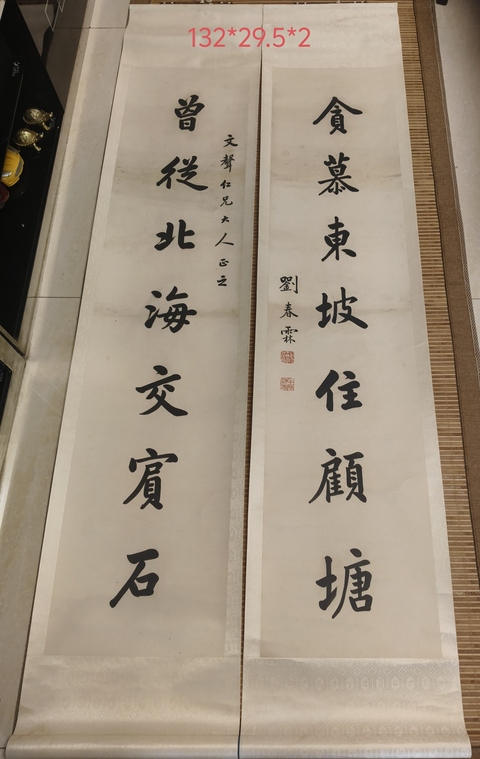 132*29.5*2
貪慕東坡住顧塘
劉春霖
文聲仁兄大人正之
曾從北海交賓石